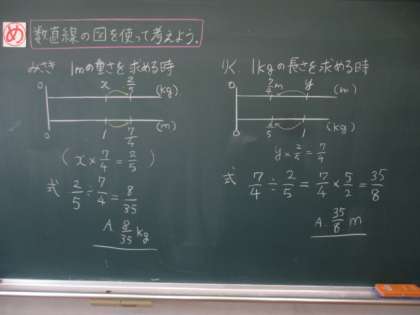 め 数直線の図を使って考えよう。
みさき 1mの重さを求める時
0 x 2/5 (kg)
0 1 7/4 (m)
(x × 7/4 = 2/5)
式 2/5 ÷ 7/4 = 8/35
A. 8/35 kg
りく 1kgの長さを求める時
0 7/4 m y (m)
2/5 1 (kg)
y × 2/5 = 7/4
式 7/4 ÷ 2/5 = 7/4 × 5/2 = 35/8
A. 35/8 m